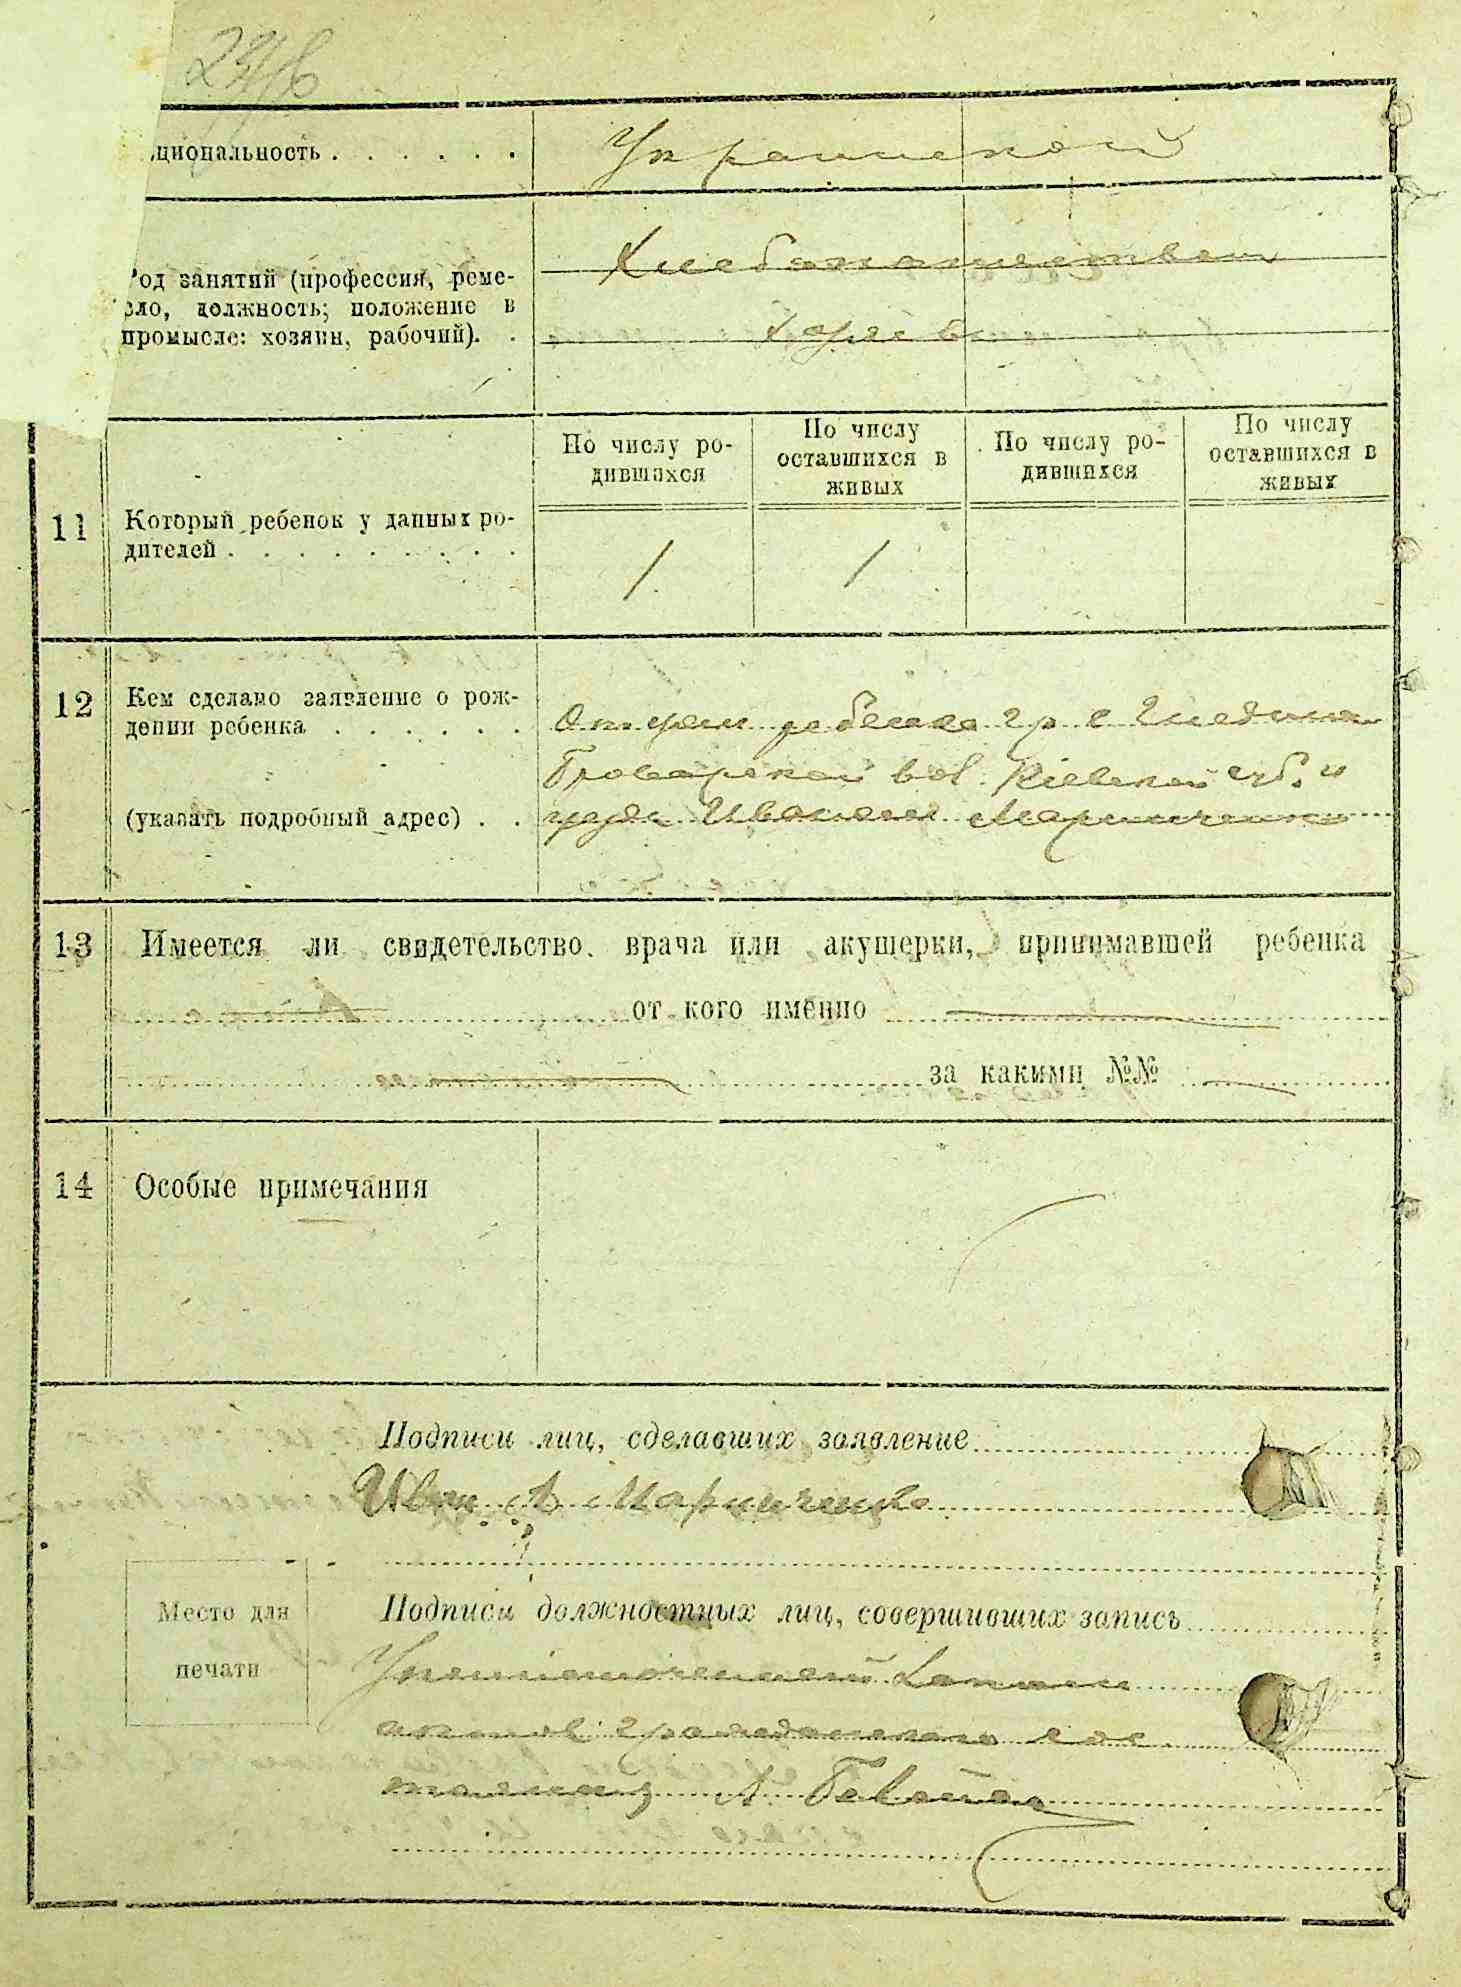 циональность . . . . . .
Украинской
Род занятий (профессия, реме-
сло, должность; положение в
промысле: хозяин, рабочий). .
Хлебопашеством
По числу ро-
дившихся
По числу
оставшихся в
живых
По числу ро-
дившихся
По числу
оставшихся в
живых
11
Который ребенок у данных ро-
дителей . . . . . . . . .
1
1
12
Кем сделано заявление о рож-
дении ребенка . . . . . .
(указать подробный адрес) . .
Отцем ребенка гр с Гнедина
Броварской вол. Киевской губ. и
уезда Иваном Маринченко
13
Имеется ли свидетельство врача или акушерки, принимавшей ребенка
от кого именно
за какими №№
14
Особые примечания
Подписи лиц, сделавших заявление
Иван А Маринченко
Место для
печати
Подписи должностных лиц, совершивших запись
Уполномоченный
актов гражданского сос
тояния